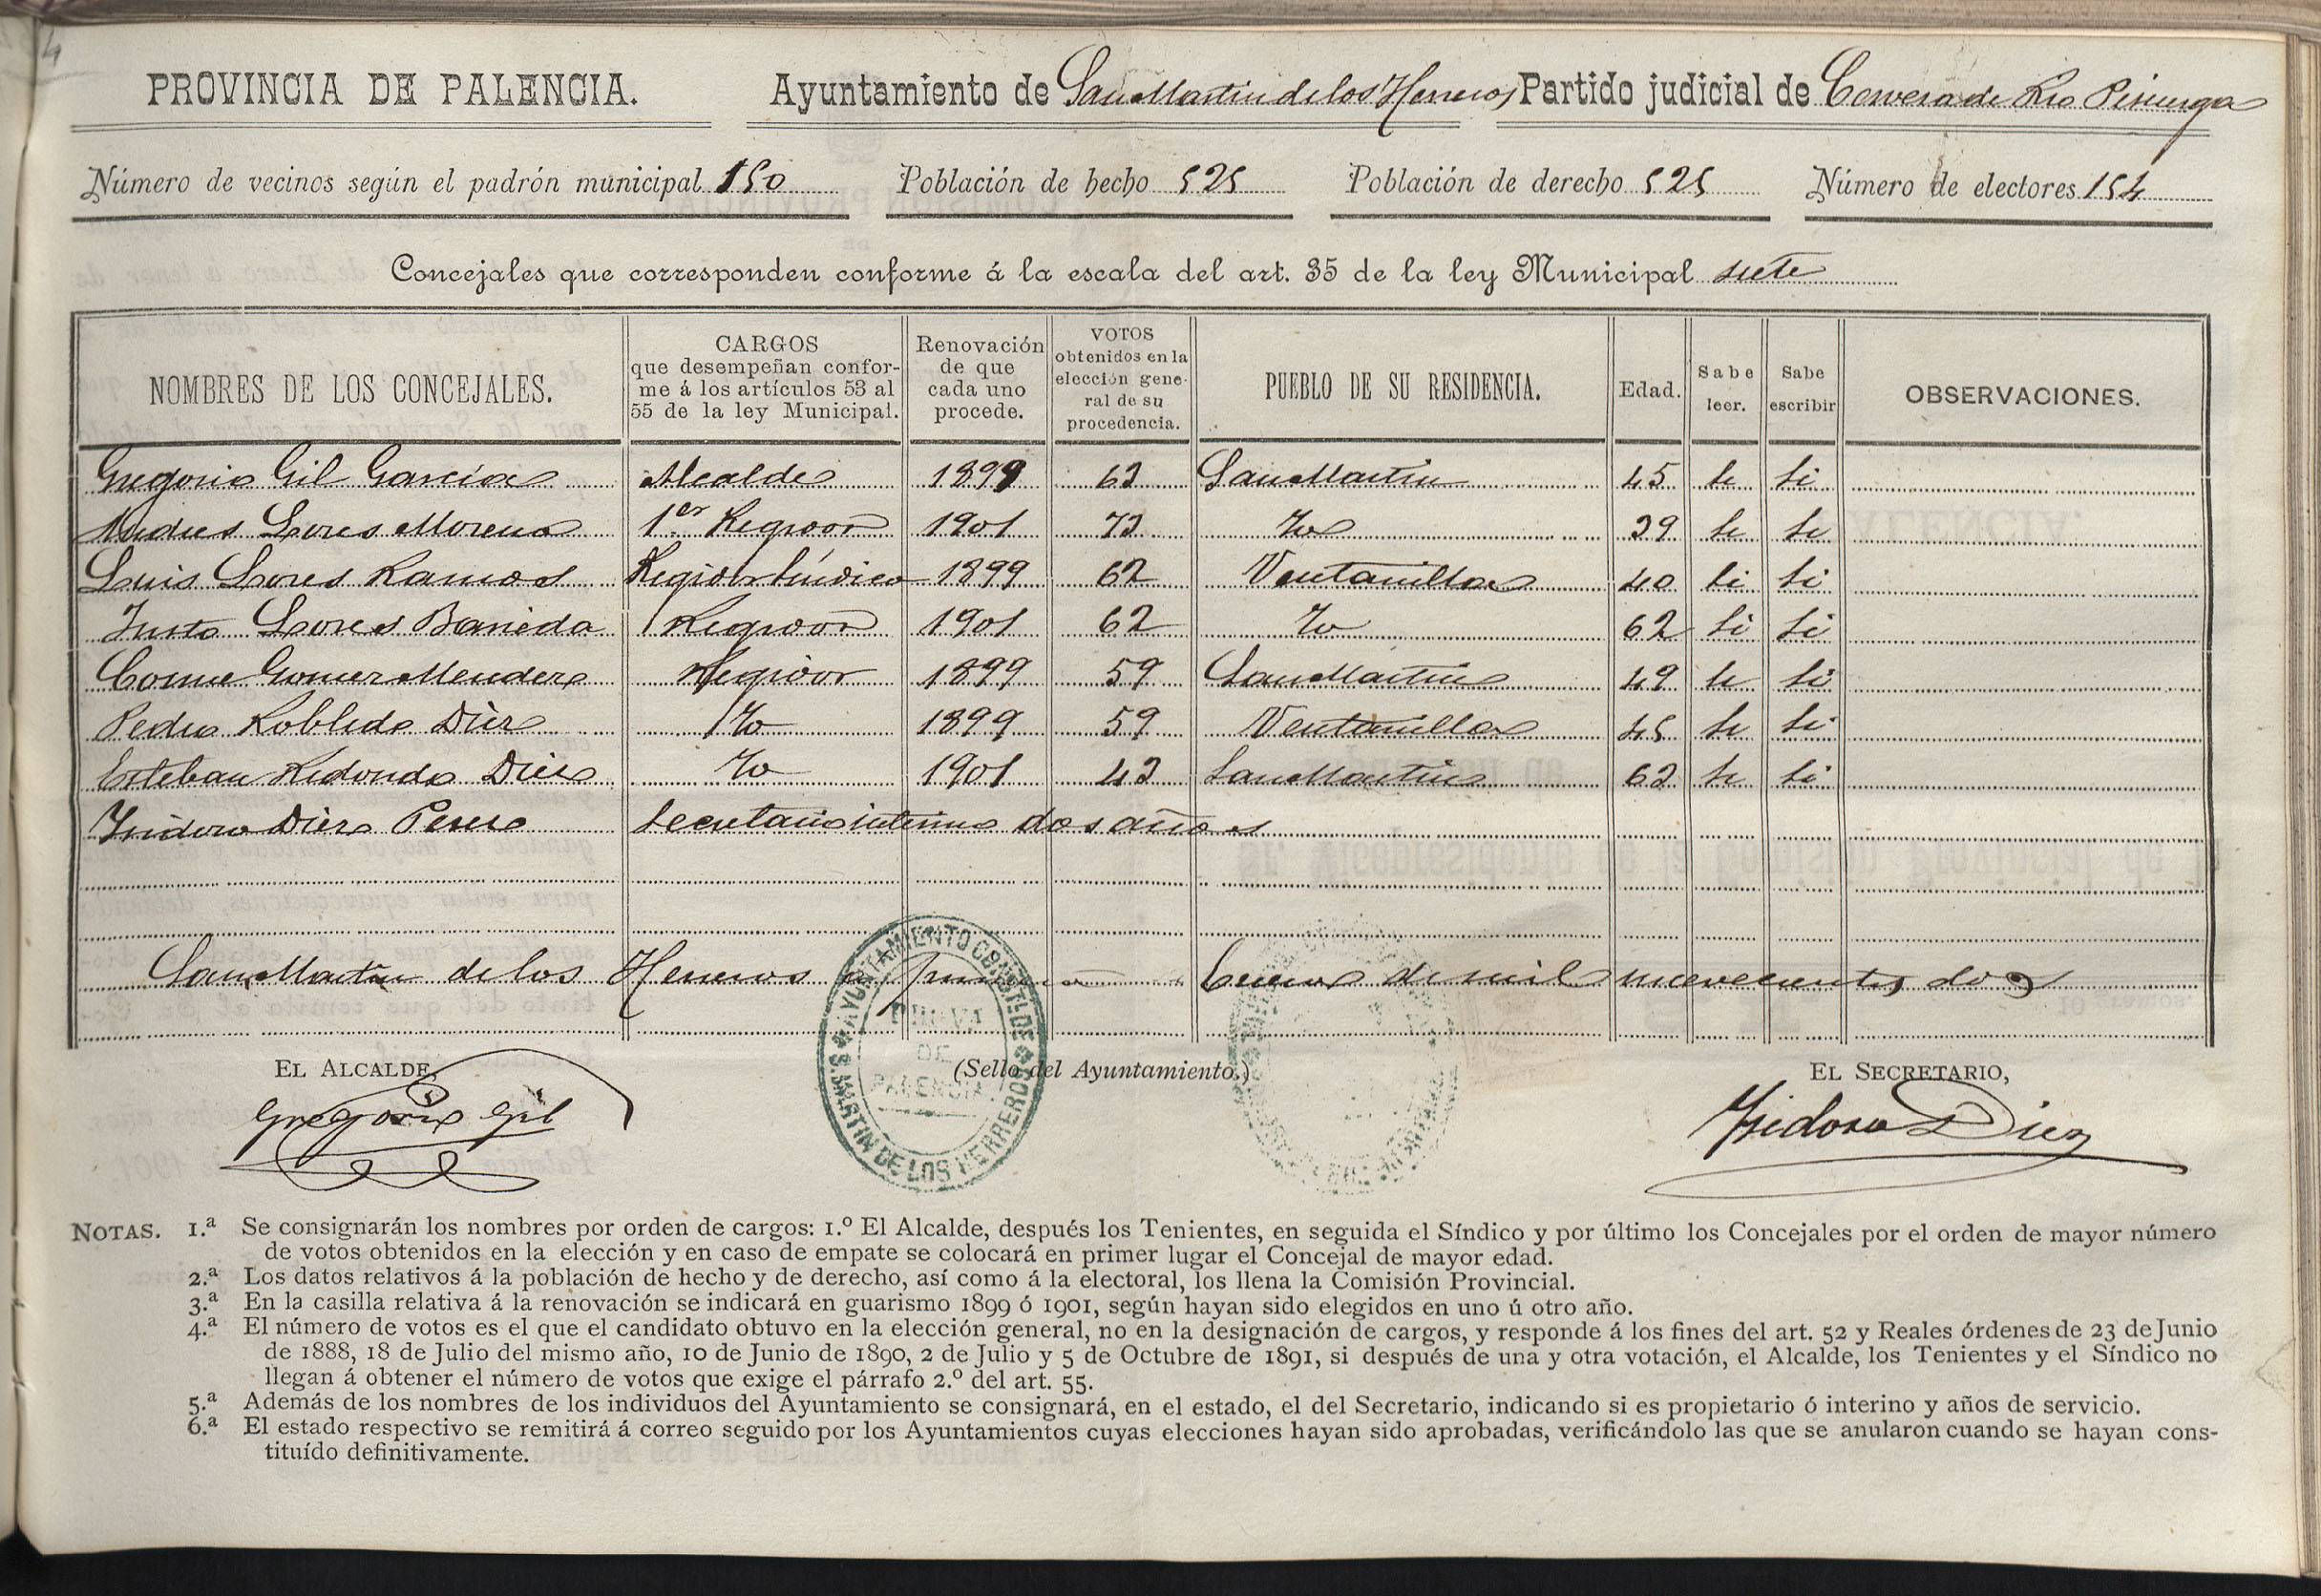 4
PROVINCIA DE PALENCIA. Ayuntamiento de San Martin de los Herreros Partido judicial de Cervera de Rio Pisuerga
Número de vecinos según el padrón municipal 150 Población de hecho 525 Población de derecho 525 Número de electores 154
Concejales que corresponden conforme á la escala del art. 35 de la ley Municipal siete
NOMBRES DE LOS CONCEJALES. CARGOS que desempeñan conforme á los artículos 53 al 55 de la ley Municipal. Renovación de que cada uno procede. VOTOS obtenidos en la elección general de su procedencia. PUEBLO DE SU RESIDENCIA. Edad. Sabe leer. Sabe escribir OBSERVACIONES.
Gregorio Gil Garcia Alcalde 1899 63 San Martin 45 si si
Andres Lores Moreno 1er Regidor 1901 73 Yo 39 si si
Luis Lores Ramos Regidor Síndico 1899 62 Ventanilla 40 si si
Justo Lores Barreda Regidor 1901 62 Yo 62 si si
Cosme Gomez Mendez Regidor 1899 59 San Martin 49 si si
Pedro Robledo Diez Yo 1899 59 Ventanilla 45 si si
Esteban Redondo Diez Yo 1901 43 San Martin 63 si si
Ysidoro Diez Perez Secretario interino dos años
San Martin de los Herreros a primero Enero de mil novecientos dos
EL ALCALDE,
(Sello del Ayuntamiento.)
EL SECRETARIO,
Gregorio Gil
Ysidoro Diez
AYUNTAMIENTO CONSTL DE S. MARTIN DE LOS HERREROS
PROVA
DE
PALENCIA
NOTAS. 1.ª Se consignarán los nombres por orden de cargos: 1.º El Alcalde, después los Tenientes, en seguida el Síndico y por último los Concejales por el orden de mayor número
de votos obtenidos en la elección y en caso de empate se colocará en primer lugar el Concejal de mayor edad.
2.ª Los datos relativos á la población de hecho y de derecho, así como á la electoral, los llena la Comisión Provincial.
3.ª En la casilla relativa á la renovación se indicará en guarismo 1899 ó 1901, según hayan sido elegidos en uno ú otro año.
4.ª El número de votos es el que el candidato obtuvo en la elección general, no en la designación de cargos, y responde á los fines del art. 52 y Reales órdenes de 23 de Junio
de 1888, 18 de Julio del mismo año, 10 de Junio de 1890, 2 de Julio y 5 de Octubre de 1891, si después de una y otra votación, el Alcalde, los Tenientes y el Síndico no
llegan á obtener el número de votos que exige el párrafo 2.º del art. 55.
5.ª Además de los nombres de los individuos del Ayuntamiento se consignará, en el estado, el del Secretario, indicando si es propietario ó interino y años de servicio.
6.ª El estado respectivo se remitirá á correo seguido por los Ayuntamientos cuyas elecciones hayan sido aprobadas, verificándolo las que se anularon cuando se hayan cons-
tituído definitivamente.